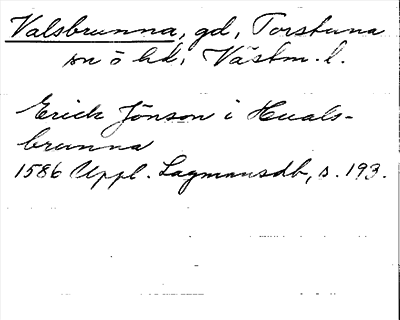 Valsbrunna, gd, Torstuna
sn ö hd, Västm. l.
Erick Jönson i Huals-
brunna
1586 Uppl. Lagmansdb, s. 193.